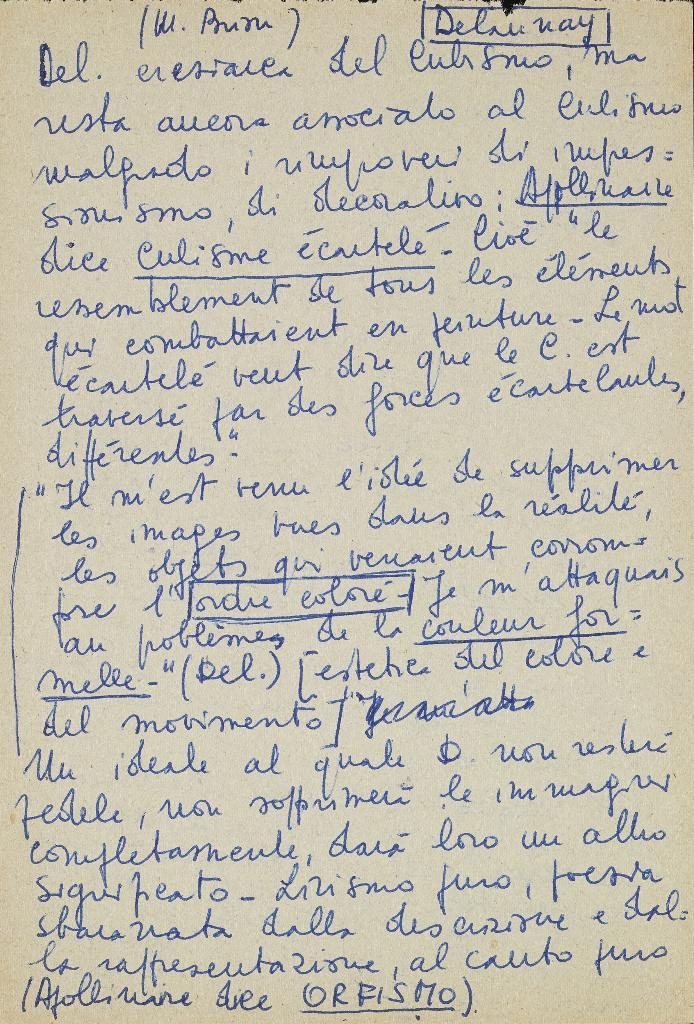 (M. Brion) Delaunay
Del. eresiarca del Cubismo, ma
resta ancora associato al Cubismo
malgrado i rimproveri di impes=
sionismo, di decorativo; Apollinaire
dice Cubisme écartelé - Cioè "le
ressemblement de tous les éléments
qui combattaient en peinture - Le mot
écartelé veut dire que le C. est
traversé par des forces écartelantes,
différentes".
"Il m'est venu l'idée de supprimer
les images vues dans la réalité,
les objets qui venaient corrom=
pre l'ordre coloré - Je m'attaquais
au poblèmes de la couleur for=
melle -" (Del.) [estetica del colore e
del movimento]
Un ideale al quale D. non resterà
fedele, non sopprimerà le immagini
completamente, darà loro un altro
significato - Lirismo puro, poesia
sbarazzata dalla descrizione e dal=
la rappresentazione, al canto puro
(Apollinaire dice ORFISMO)